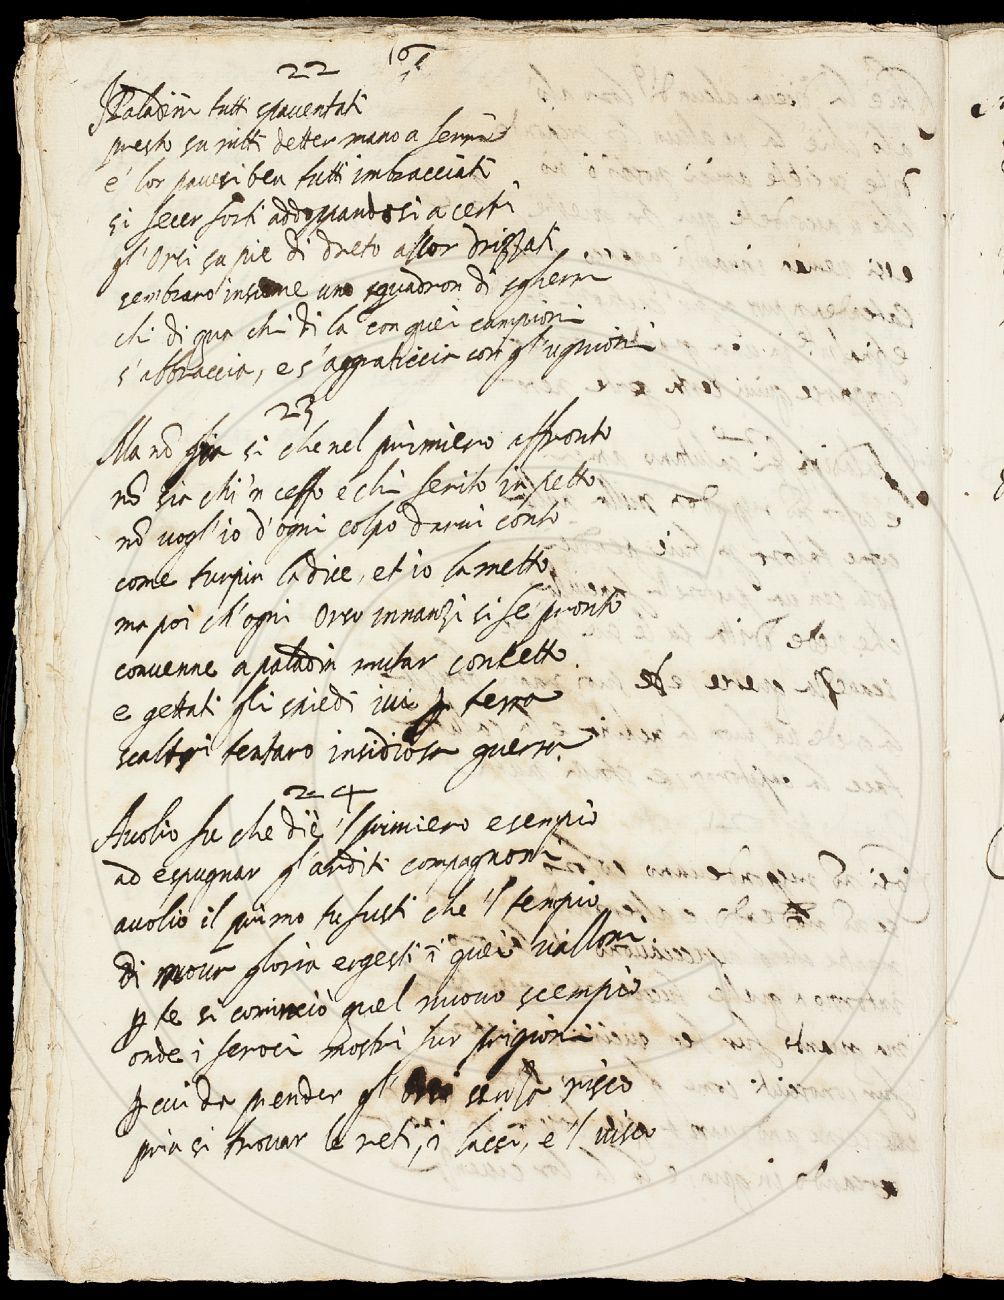 22
I Paladini tutti spaventati
presto su ritti detter mano a ferri
e' lor pavesi ben tutti imbracciati
si fecer forti addossandosi a cerri
gl'Orsi su pie di dreto allor drizzati
sembraro insieme uno squadron di sgherri
chi di qua chi di la con quei campioni
s'abbraccia, e s'aggraticcia con gl'ugnioni
23
Ma nō già si che nel primiero affronto
nō sia chi 'n ceffo e chi ferito in petto
nō vogl'io d'ogni colpo darvi conto
come turpin la dice, et io la metto
ma poi ch'ogni Orso innanzi si fe' pronto
convenne a paladin mutar concetto
e gettati gli spiedi ivi p terra
scaltri tentaro insidiosa guerra.
24
Avolio fu che diè 'l primiero esempio
ad espugnar gl'arditi compagnoni
avolio il primo tu fusti che 'l tempio
di nova gloria ergesti ī quei valloni
p te si cominciò quel nuovo scempio
onde i feroci mostri fur prigioni
p cui da prender gl'Orsi senza risco
pria si trovar le reti, i lacci, e 'l visco